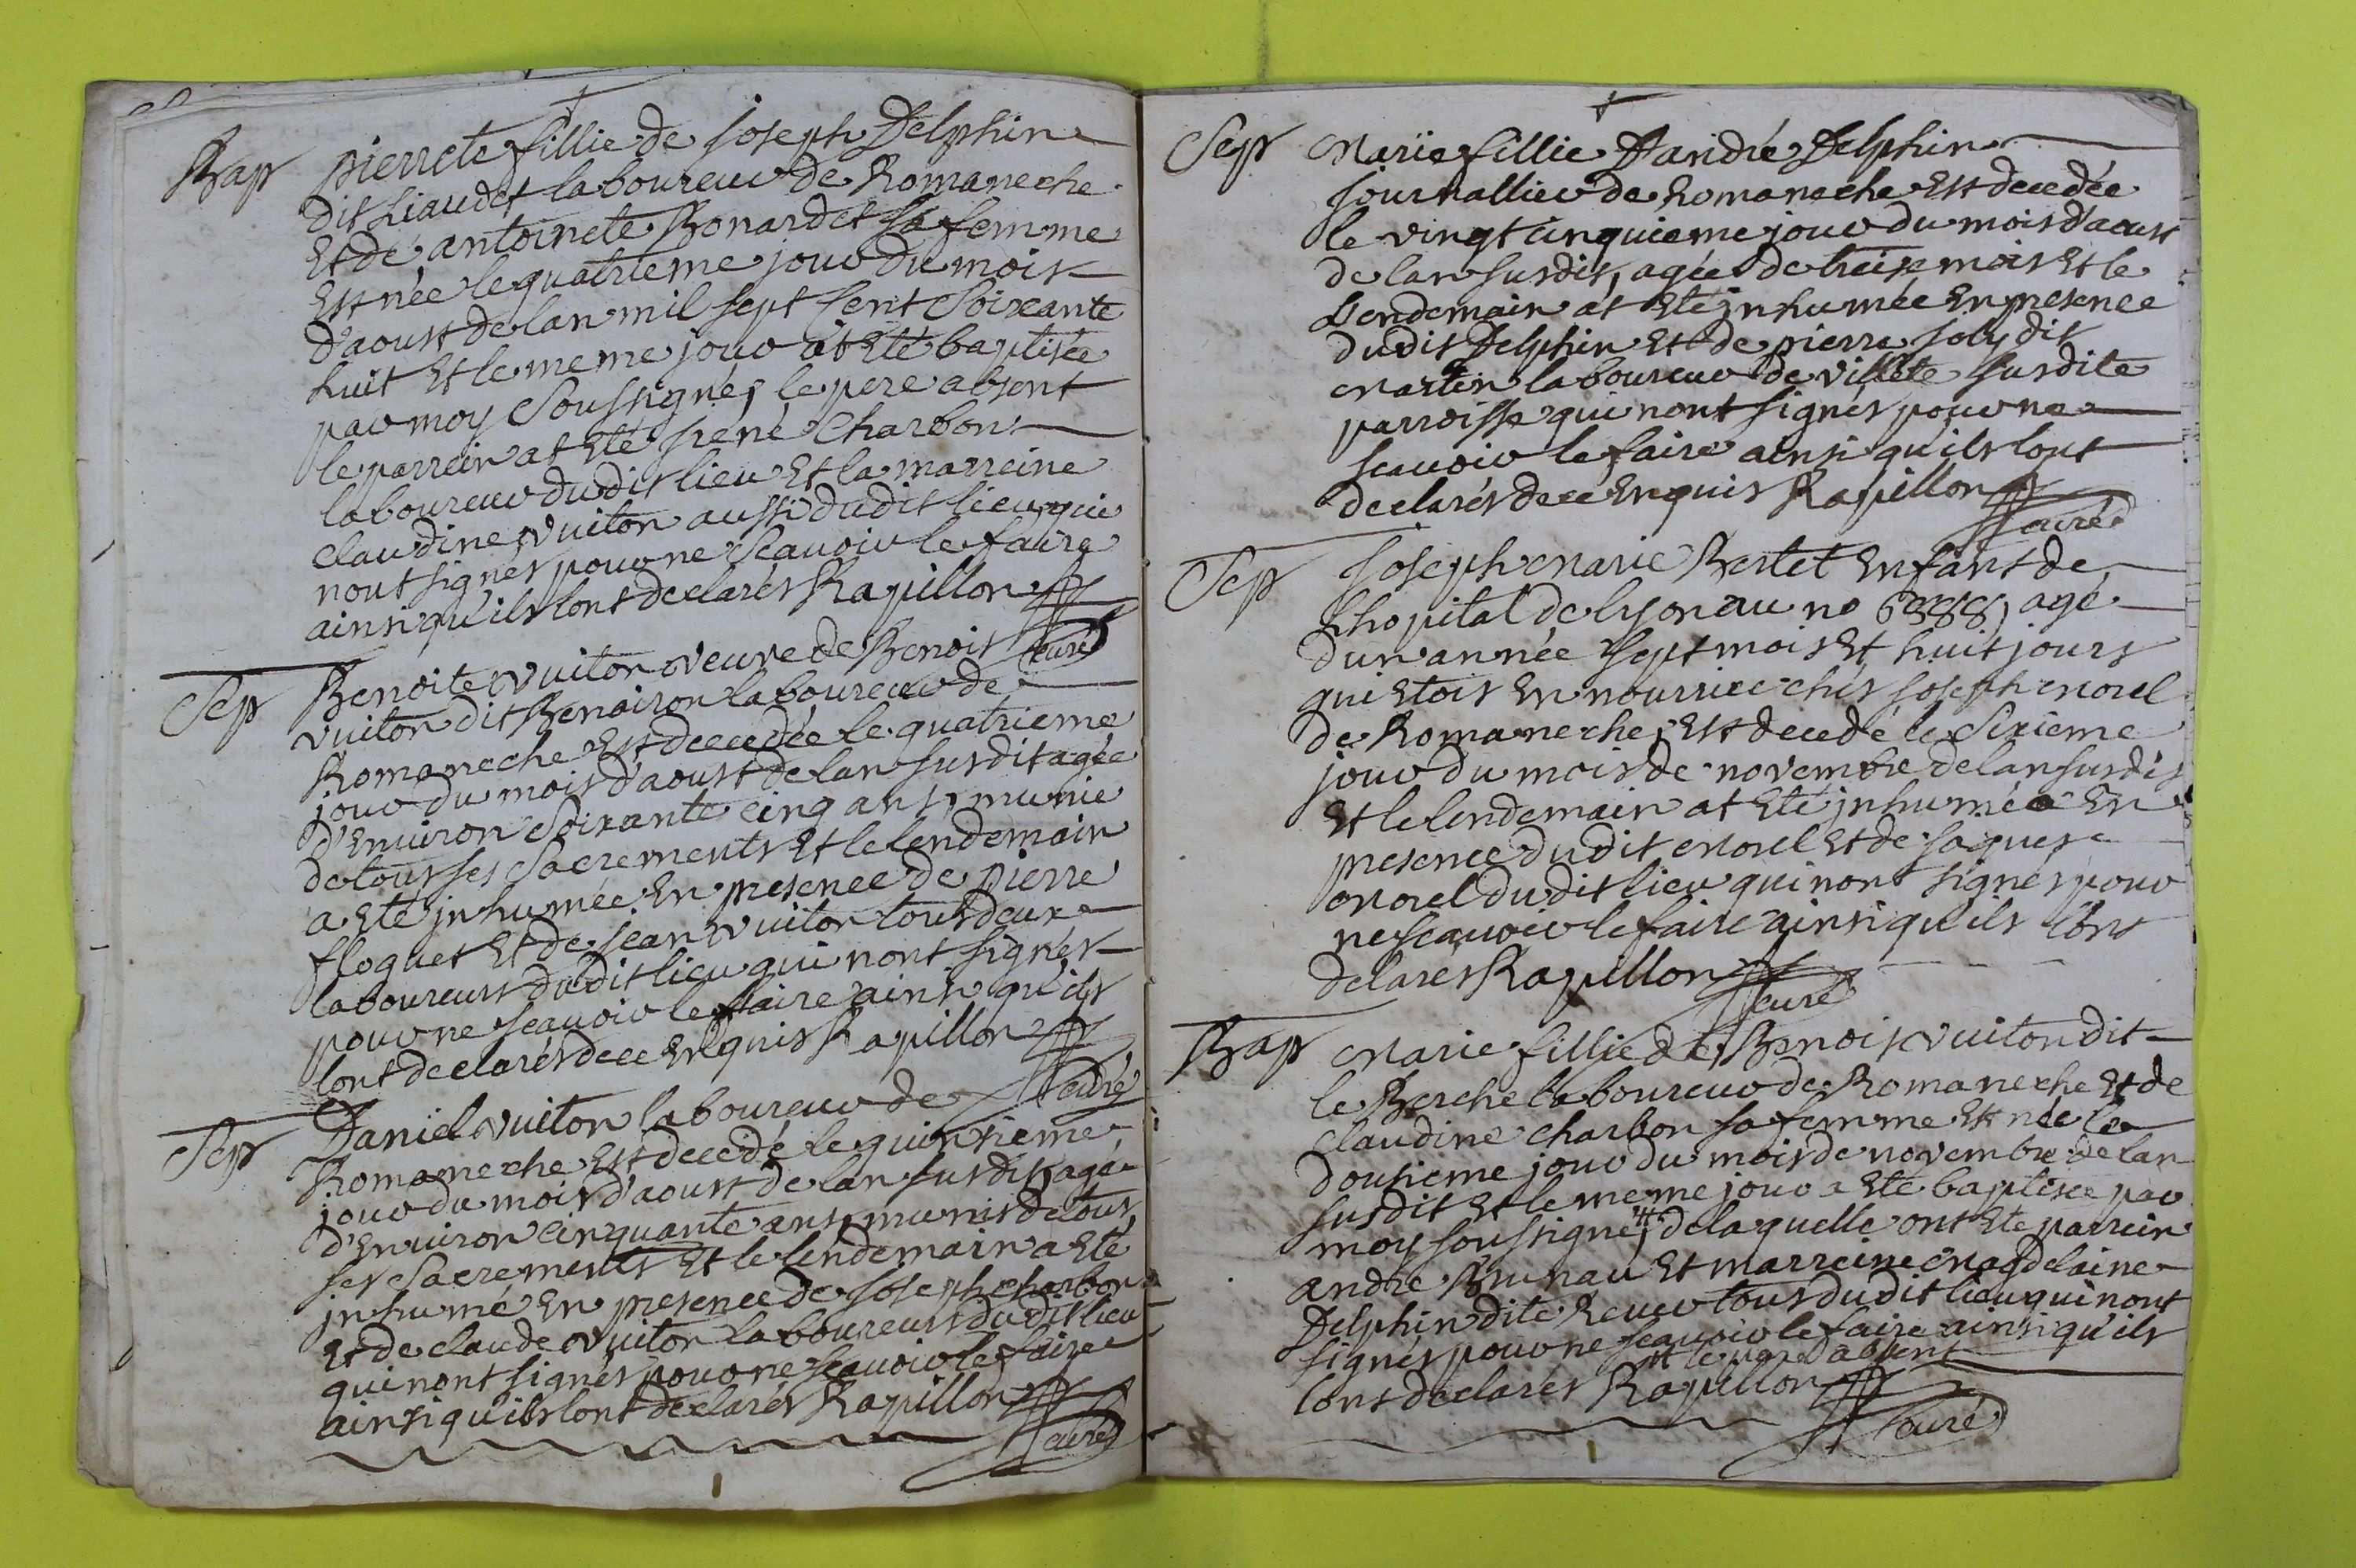 Bap
pierrete fillie de joseph Delphin
dit Liaudet laboureur de Romaneche
Et de antoinete Bonardet sa femme
Est née le quatrieme jour du mois
d'aoust de lan mil sept sent soixante
huit Et le meme jour at Eté baptisée
par moy soussigné, le pere absent
le parrein at Eté Charbon
laboureur dudit lieu Et la marreine
claudine vuiton aussi dudit lieu qui
nont signés pour ne scauoir le faire
ainsi qu'ils lont declarés Rapillon
curé
Sep
Benoite vuiton veuve de Benois
vuiton dit Benoiron laboureur de
Romaneche Est decedée le quatrieme
jour du mois d'aoust de lan susdit agée
d'Enuiron soixante cinq ans, munie
de tous ses sacrements Et le lendemain
a Eté jnhumée En presence de pierre
floquet Et de jean vuiton tous deux
laboureurs dudit lieu qui nont signés
pour ne scauoir le faire ainsi qu'ils
lont declarés de ce Enquis Rapillon
curé
Sep
Daniel vuiton laboureur de
Romaneche Est decedé le quinsieme
jour du mois d'aoust de lan susdit, agé
d'Enuiron cinquante ans, munis de tous
ses sacrements Et le lendemain a Eté
jnhumé En presence de joseph charbon
Et de claude vuiton laboureurs dudit lieu
qui nont signés pour ne scauoir le faire
ainsi qu'ils lont declarés Rapillon
curé
Sep
Marie fillie D'andré Delphin
journallier de Romaneche Est decedée
le vingt cinquieme jour du mois d'aoust
de lan susdit, agée de treise mois Et le
Lendemain at Eté jnhumée En presence
dudit Delphin Et de pierre joly dit
martin laboureur de villete susdite
parroisse qui nont signés pour ne
scauoir le faire ainsi qu'ils lont
declarés de ce Enquis Rapillon
curé
Sep
Joseph marie Bertet Enfant de
Lhopital de lyon au no agé
dun année sept mois Et huit jours
qui Etoit En nourrice chés joseph morel
de Romaneche, Est decedé le sixieme
jour du mois de novembre de lan susdit
Et le lendemain at Eté jnhumée En
presence dudit morel Et de jaques
morel dudit lieu qui nont signés pour
ne scauoir le faire ainsi qu'ils lont
delarés Rapillon
curé
Bap
Marie fillie de Benois vuiton dit
le Berche laboureur de Romaneche Et de
claudine charbon sa femme Est née le
dousieme jour du mois de novembre de lan
susdit Et le meme jour a Eté baptisée par
moy soussigné, # de laquelle ont Eté parrein
andré Brunau Et marreine magdelaine
Delphin dite tous dudit lieu qui nont
signés pour ne scauoir le faire ainsi qu'ils
# le pere absent
lont declarés Rapillon
curé